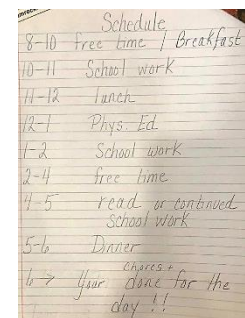 Schedule
8-10 free time / Breakfast
10-11 School work
11-12 lunch
12-1 Phys. Ed
1-2 School work
2-4 free time
4-5 read or continued
School work
5-6 Dinner
chores +
6 → Your done for the
day !!